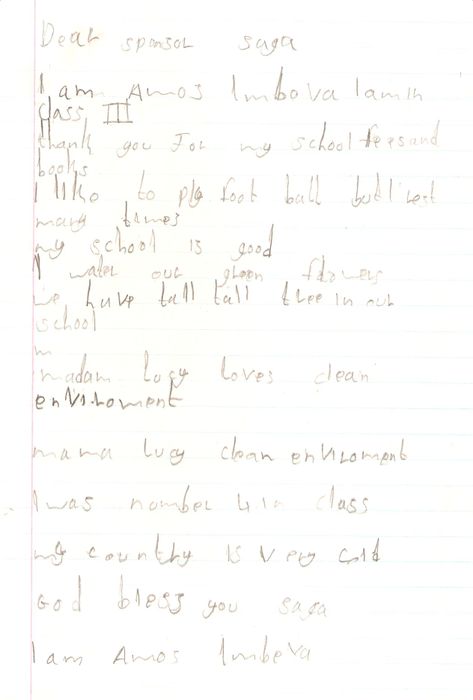 Dear sponsor saga
I am Amos Imbova Iamin
class III
thank you For my school feesand
books
I like to ply foot ball but i rest
many times
my school is good
I water our green flowers
we have tall tall tree in our
school
m
madam Lucy loves clean
enviroment
mama lucy clean enviroment
I was number 4 in class
my country is very cold
God bless you saga
I am Amos Imbeva